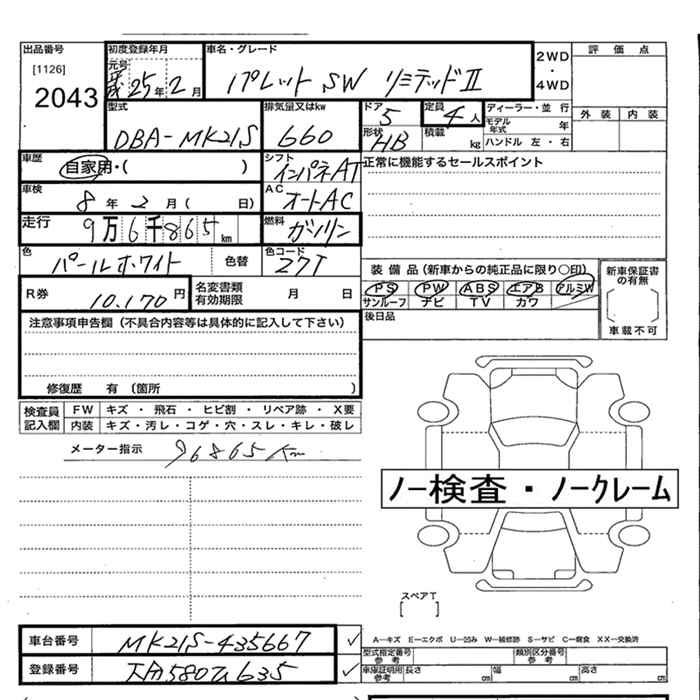 出品番号 初度登録年月 車名・グレード 評価点
[1126] 元号 2WD
2043 平成 25年 2月 パレット SW リミテッドⅡ ・
4WD
型式 排気量又はkw ドア 定員 ディーラー・並行 外装 内装
DBA-MK21S 660 5 4人 モデル年式 年
形状 HB 積載 kg ハンドル 左・右
車歴 自家用・( ) シフト インパネAT 正常に機能するセールスポイント
車検 8年 2月( 日) AC オートAC
走行 9万6千865km 燃料 ガソリン
色 パールホワイト 色替 色コード Z7T
装備品(新車からの純正品に限り○印) 新車保証書の有無
R券 10.170円 名変書類有効期限 月 日 PS PW ABS エアB アルミW
サンルーフ ナビ TV カワ
注意事項申告欄(不具合内容等は具体的に記入して下さい) 後日品 車載不可
修復歴 有(箇所 )
検査員記入欄 FW キズ・飛石・ヒビ割・リペア跡・X要
内装 キズ・汚レ・コゲ・穴・スレ・キレ・破レ
メーター指示 96865Km
ノー検査・ノークレーム
スペアT
[ ]
車台番号 MK21S-435667 ✓ A―キズ E―エクボ U―凹み W―補修跡 S―サビ C―腐食 XX―交換済
型式指定番号 参考 類別区分番号 参考
登録番号 大分580 635 ✓ 車庫証明用 参考 長さ cm 幅 cm 高さ cm